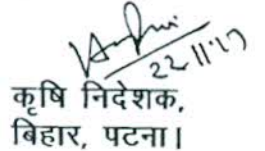 22.11.17
कृषि निदेशक,
बिहार, पटना।